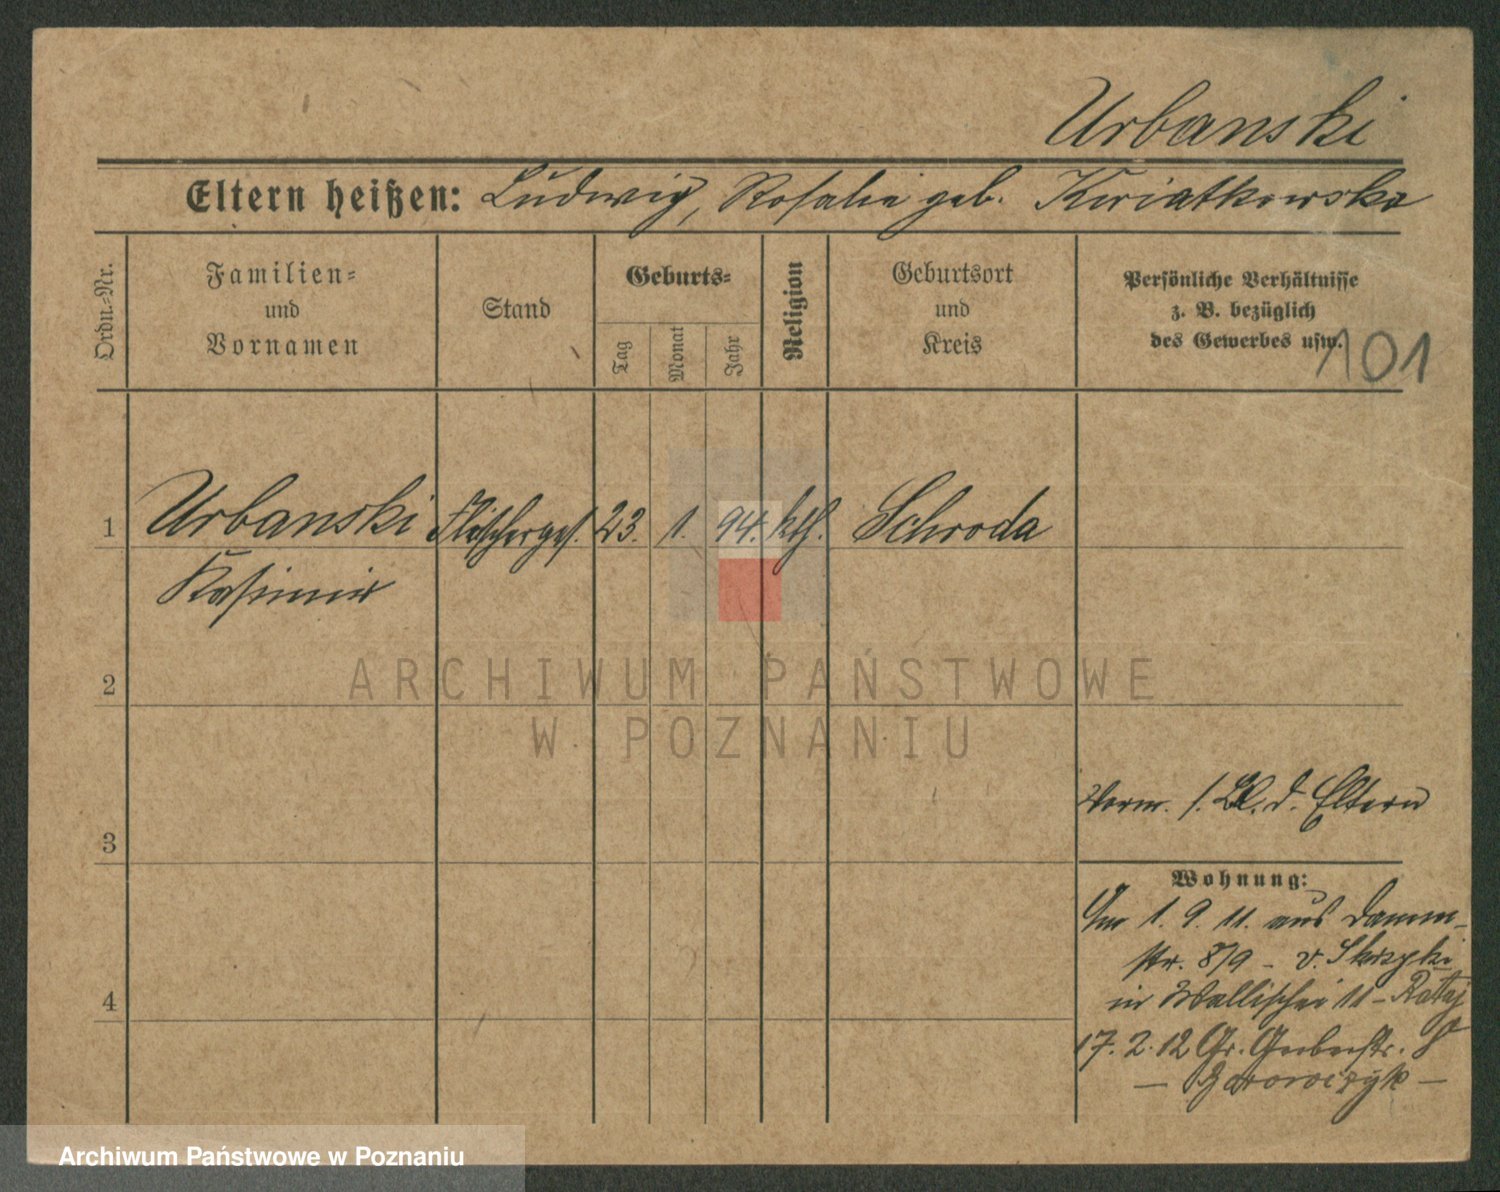 Urbanski
Eltern heißen: Ludwig, Rosalie geb. Kwiatkowska
Ordn.-Nr.
Familien-
und
Vornamen
Stand
Geburts-
Tag
Monat
Jahr
Religion
Geburtsort
und
Kreis
Persönliche Verhältnisse
z. B. bezüglich
des Gewerbes usw.
101
1 Urbanski Fleischerges. 23. 1. 94. kth. Schroda
Kasimir
2
3
4
Verm. s. Bl. d. Eltern
Wohnung:
Am 1. 9. 11. aus Damm-
str. 8/9 - v. Skrzypki
in Wallischei 11 - Rataj
17. 2. 12 Gr. Gerberstr. 8
ARCHIWUM PAŃSTWOWE
W POZNANIU
Archiwum Państwowe w Poznaniu